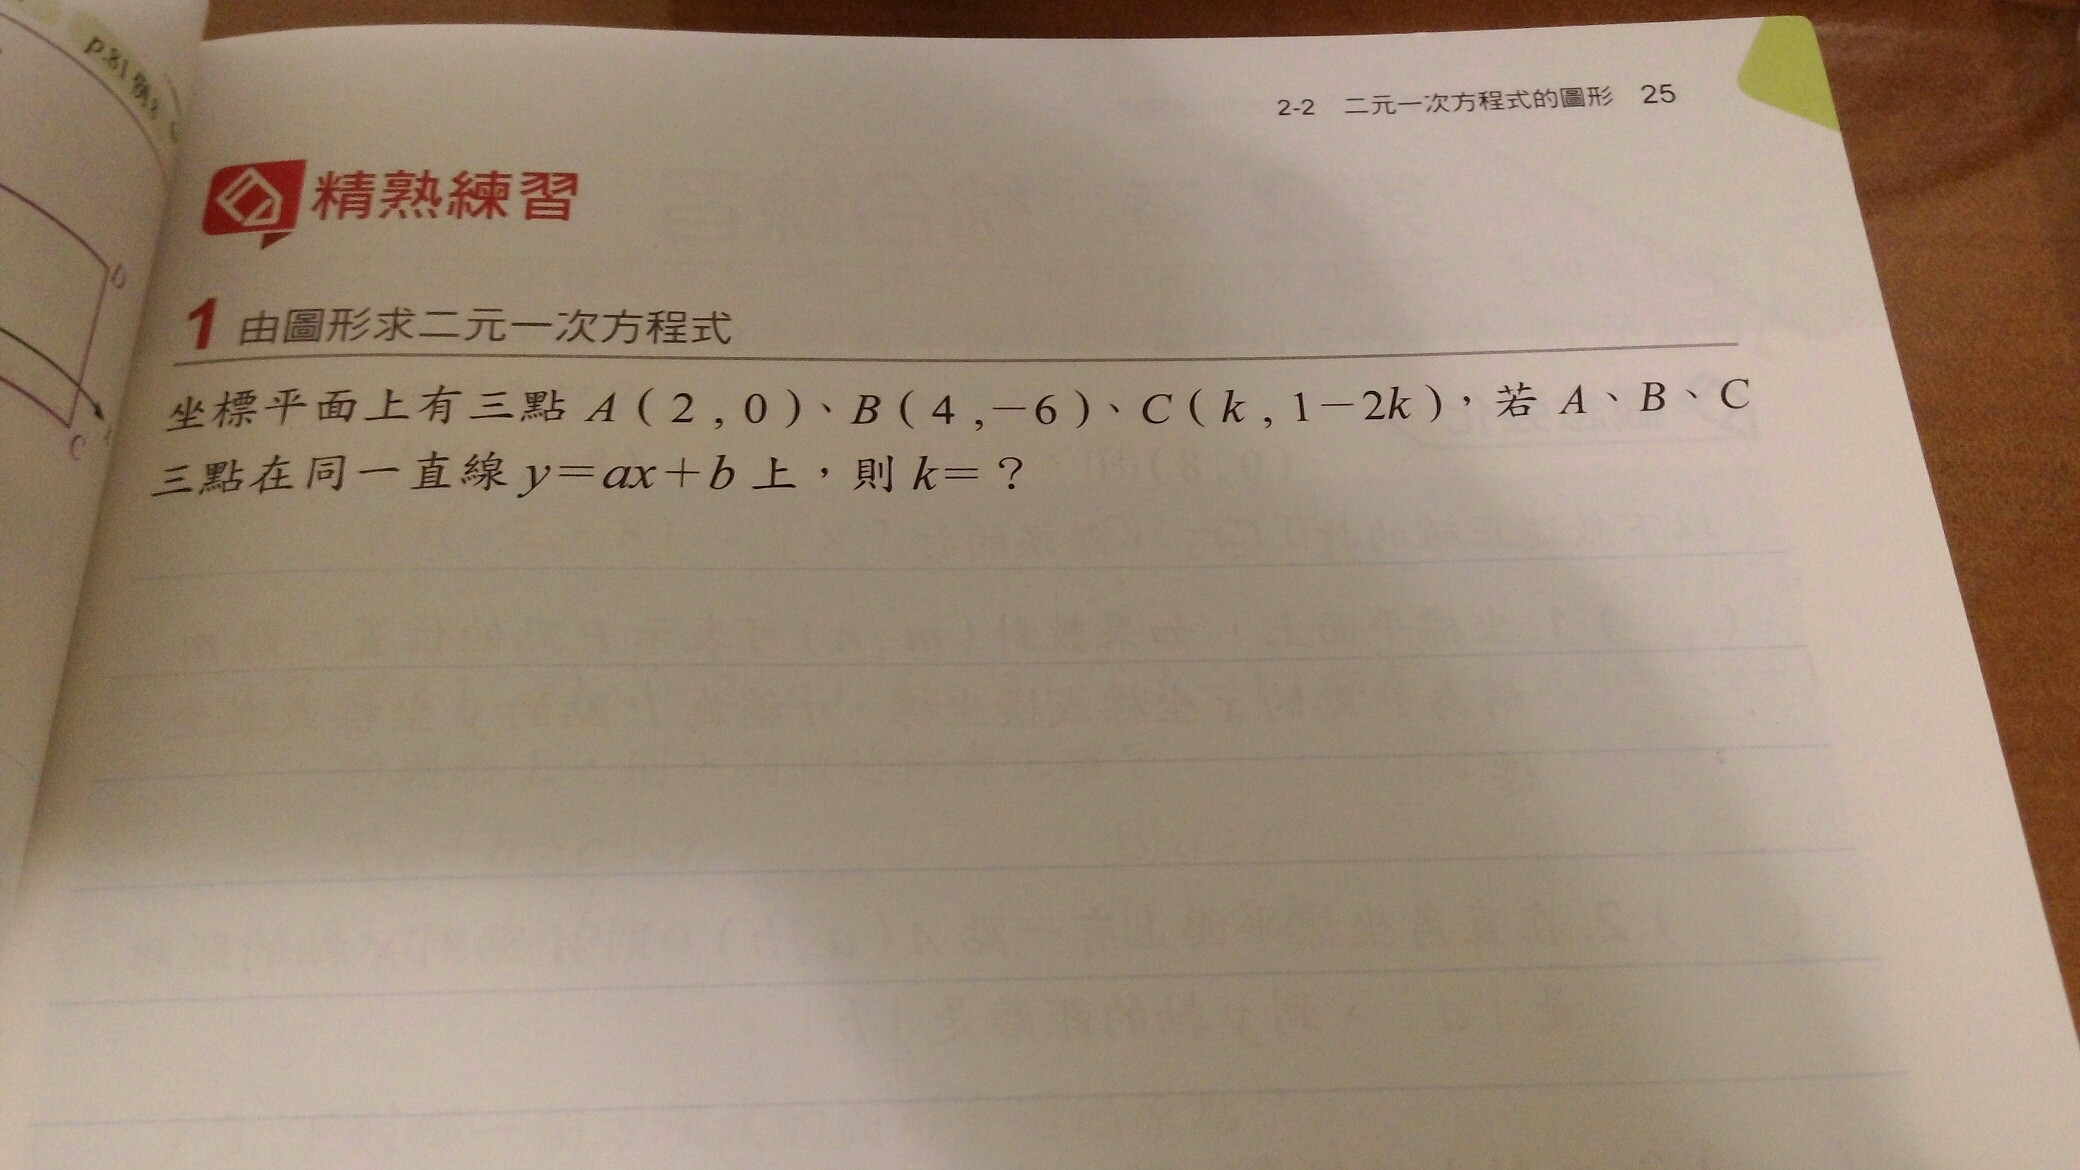 p.81 例
2-2 二元一次方程式的圖形 25
精熟練習
1 由圖形求二元一次方程式
坐標平面上有三點 A(2,0)、B(4,-6)、C(k,1-2k),若 A、B、C
三點在同一直線 y=ax+b 上,則 k=?
D
C